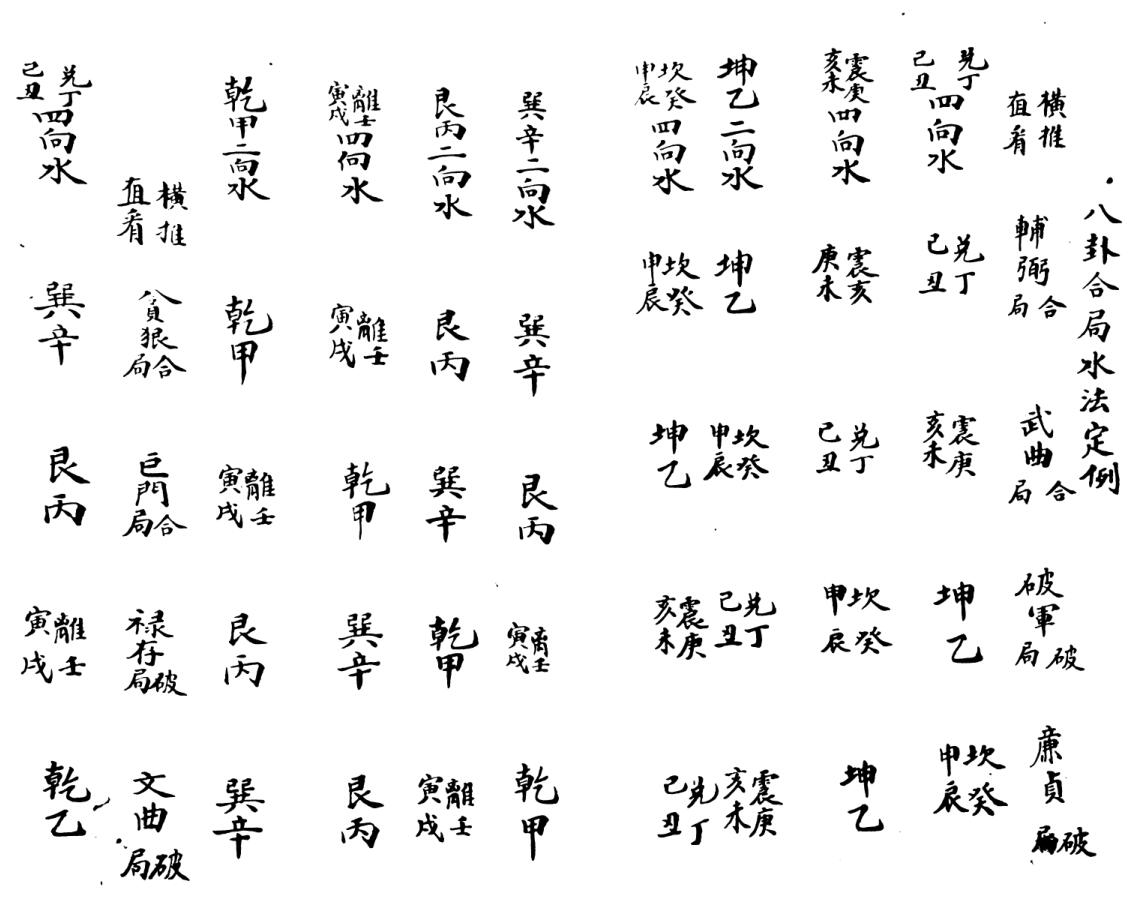 八卦合局水法定例
橫推直看 輔弼合局 武曲合局 破軍破局 廉貞破局
兑丁己丑四向水 兑丁己丑 震庚亥未 坤乙 坎癸申辰
震庚亥未四向水 震亥庚未 兑丁己丑 坎癸申辰 坤乙
坤乙二向水 坤乙 坎癸申辰 兑丁己丑 震庚亥未
坎癸申辰四向水 坎癸申辰 坤乙 震庚亥未 兑丁己丑
巽辛二向水 巽辛 艮丙 離壬寅戌 乾甲
艮丙二向水 艮丙 巽辛 乾甲 離壬寅戌
離壬寅戌四向水 離壬寅戌 乾甲 巽辛 艮丙
乾甲二向水 乾甲 離壬寅戌 艮丙 巽辛
橫推直看 貪狠合局 巨門合局 禄存破局 文曲破局
兑丁己丑四向水 巽辛 艮丙 離壬寅戌 乾乙